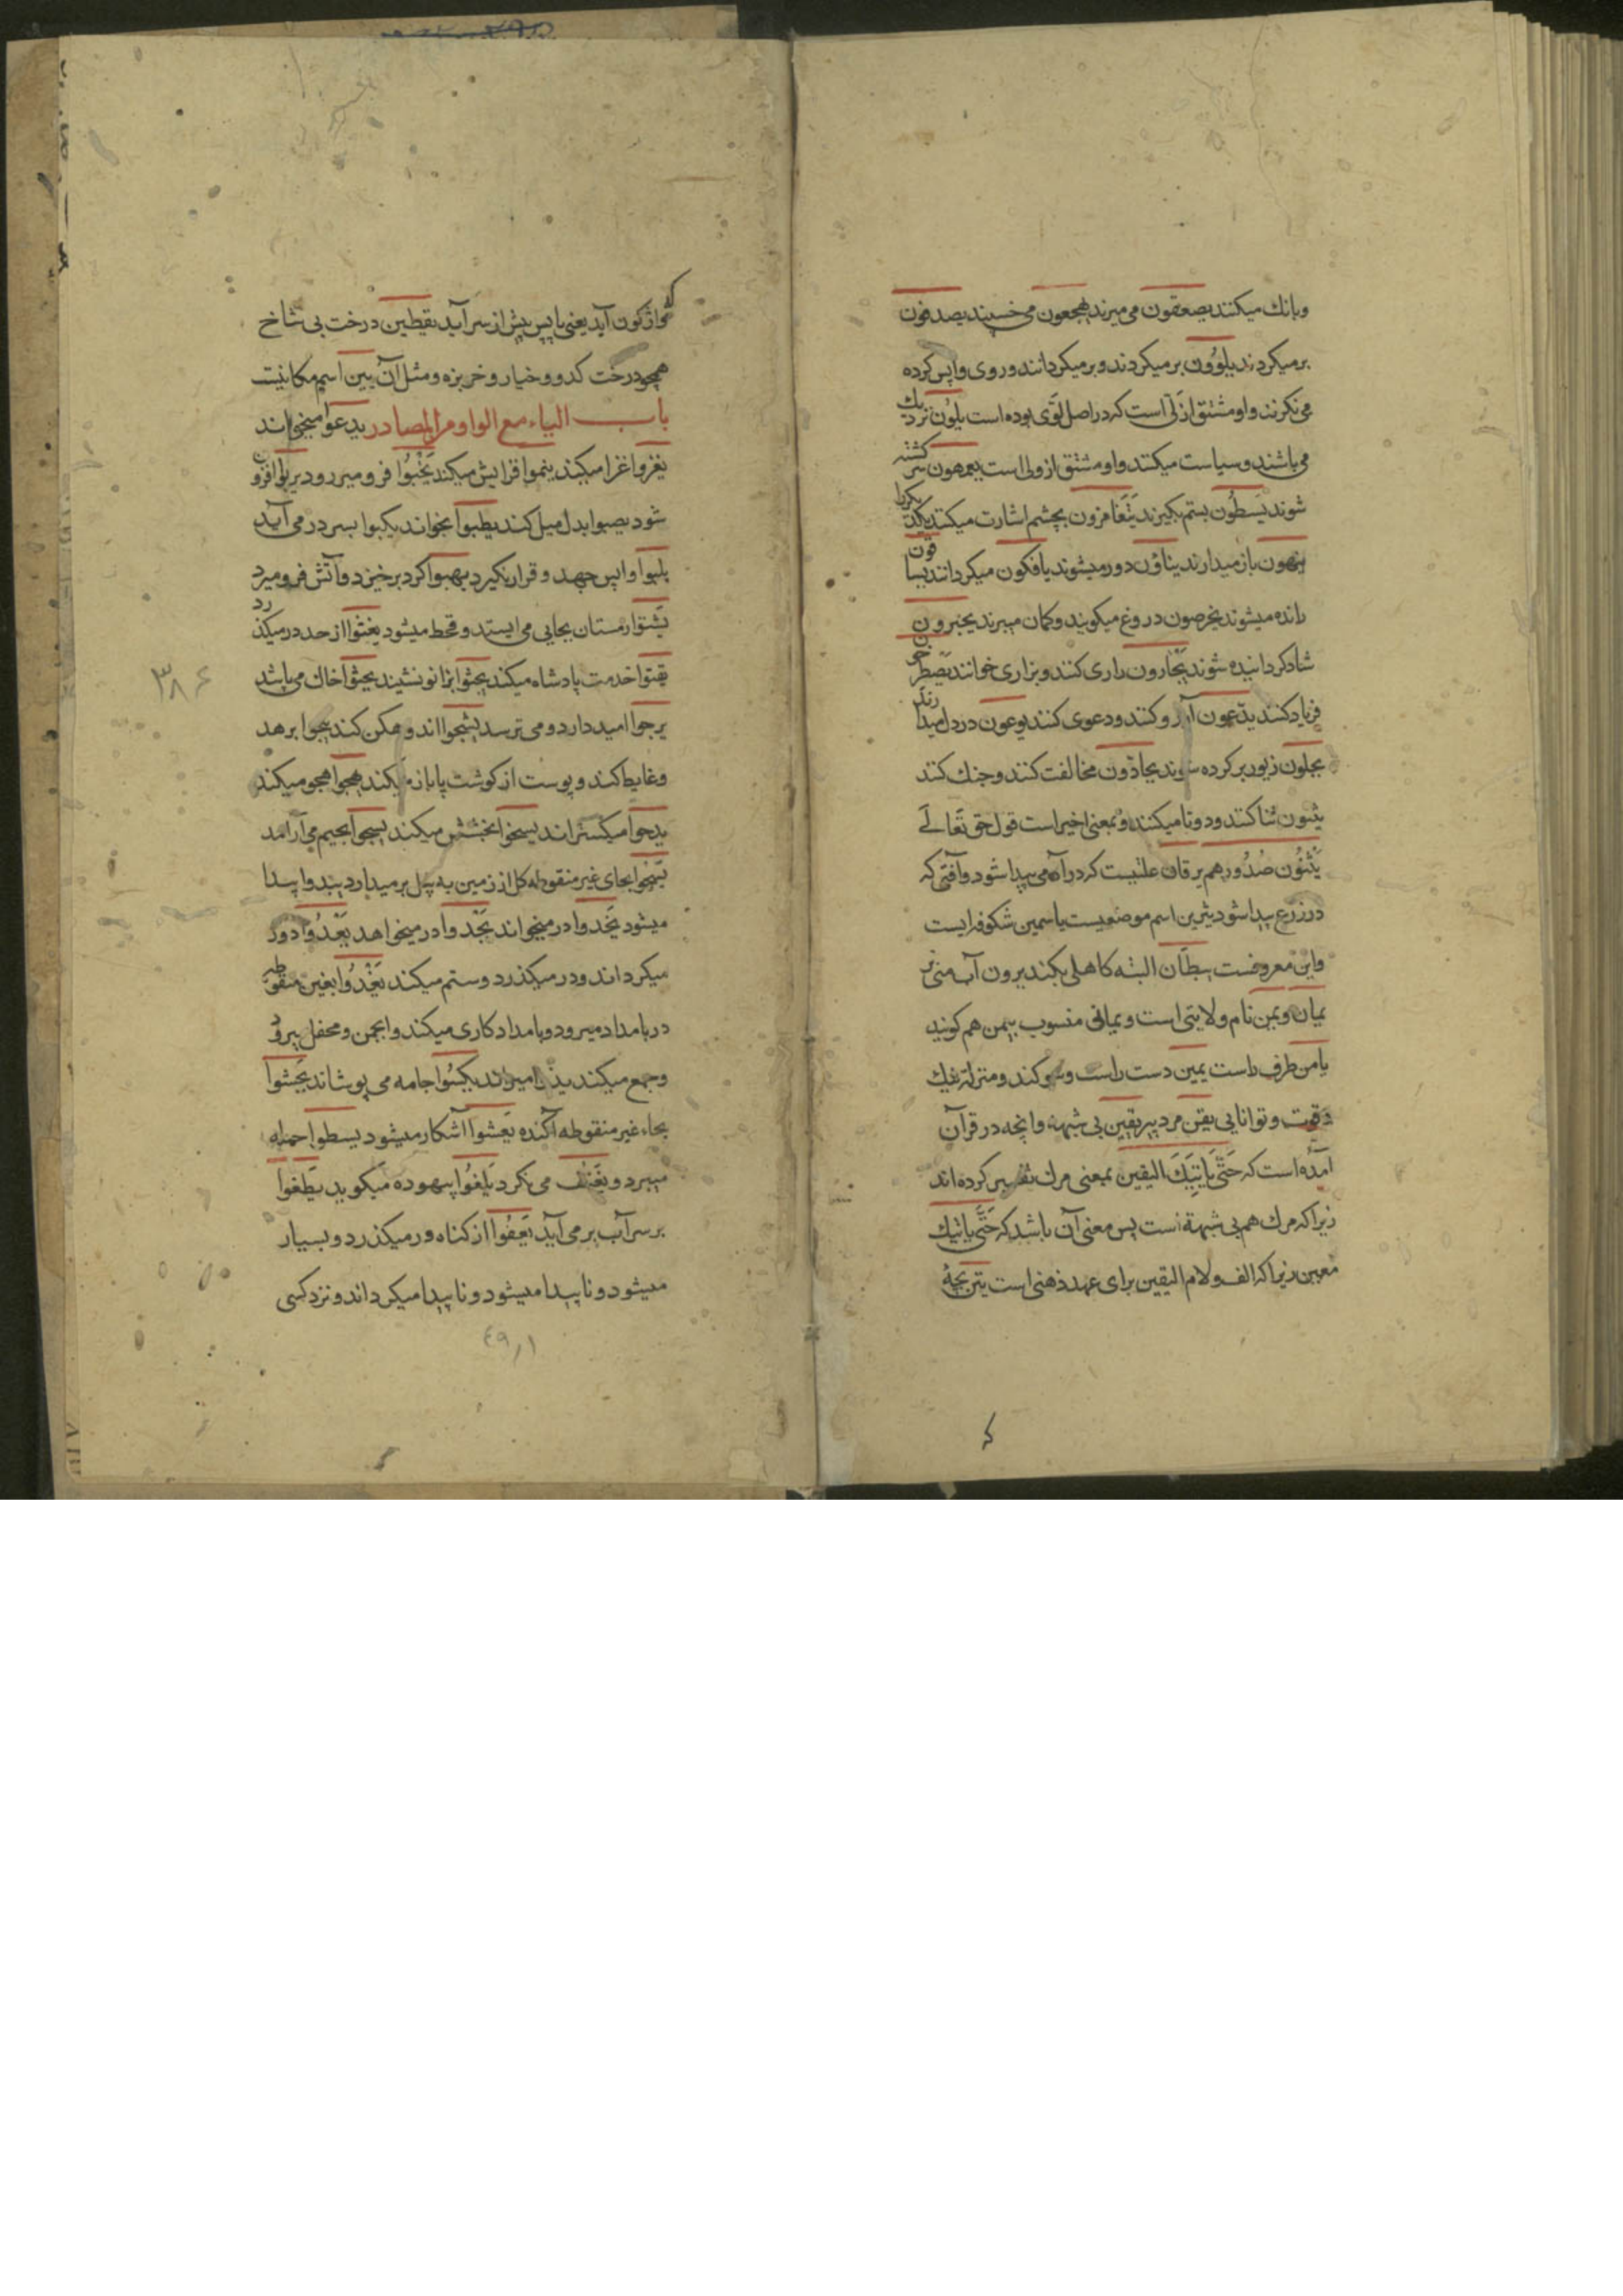 وبانك میکنند یصعقون می میرند یهجعون می خسپند یصدفون
برمیکردند یلوون برمیکردند وبرمیکردانند وروی واپس کرده
می نکرند واو مشتق از لی است که در اصل لوی بوده است یلون نزدیك
می باشند وسیاست میکنند واو مشتق از ولی است یعمهون سرکشته
شوند یسطون بستم بکیرند یتغامزون بچشم اشارت میکنند
ینهون باز میدارند یناؤن دور میشوند یافکون میکردانند یساقون
رانده میشوند یخرصون دروغ میکویند وکمان میبرند یحبرون
شاد کردانیده شوند یجارون زاری کنند وبزاری خوانند یصطرخون
فریاد کنند یدعون آرزو کنند ودعوی کنند یوعون در دل میدارند
یحلون زیور بر کرده شوند یحادّون مخالفت کنند وجنك کنند
یثنون ثنا کنند ودوتا میکنند وبمعنی اخیر است قول حق تعالے
یَثنُون صُدُورهم یرقان علتیست که در آدمی پیدا شود وآفتی که
در زرع پیدا شود یثرین اسم موضعیست یاسمین شکوفه ایست
واین معروفست یبطان البته کاهلی بکند یرون آب منی نر
یمان ویمن نام ولایتی است ویمانی منسوب بیمن هم کویند
یامن طرف راست یمین دست راست وسوکند ومنزلة نیك
وقوت وتوانایی یفن مرد پیر یقین بی شبهه وانچه در قرآن
آمده است که حَتّی یَاتِیَكَ الیقین بمعنی مرك تفسیر کرده اند
زیرا که مرك هم بی شبهة است پس معنی آن باشد که حَتّی یاتیك
معین زیرا که الف ولام الیقین برای عهد ذهنی است یتن بچۀ
که واژکون آید یعنی پا پس پیش از سر آید یقطین درخت بی شاخ
همچو درخت کدو وخیار وخربزه ومثل آن یبین اسم مکانیست
باب الیاء مع الواو من المصادر یدعوا میخواند
یغزوا غزا میکند ینموا افزایش میکند یَخْبُوا فرو میرود یربوا افزون
شود یصبوا بدل میل کند یطبوا بخواند یکبوا بسر در می آید
ینبوا واپس جهد وقرار نکیرد یهبوا کرد برخیزد وآتش فرو میرد
یشتوا زمستان بجایی می ایستد وقحط میشود یعتوا از حد در میکذرد
یقتوا خدمت پادشاه میکند یجثوا بزانو نشیند یحثوا خاك می پاشد
یرجوا امید دارد ومی ترسد یشجوا اندوهکن کند ینجوا برهد
وغایط کند وپوست از کوشت پا باز میکند یهجوا هجو میکند
یدحوا میکستراند یسخوا بخششی میکند یسجوا بجیم می آرامد
یسحوا بحای غیر منقوطه کل از زمین به بیل بر میدارد یبدوا پیدا
میشود یحدوا در میخواند یجدوا در میخواهد یَعْدُوا دور
میکرداند ودر میکذرد وستم میکند یَغْدُوا بغین منقوطه
در بامداد میرود وبامداد کاری میکند وانجمن ومحفل
وجمع میکند یکسُوا جامه می پوشاند یَحشوا
بحاء غیر منقوطه آکنده یَفشوا آشکار میشود یسطوا حمله
میبرد می نکرد یَلغُوا بیهوده میکوید یَطفوا
بر سر آب بر می آید یَعفُوا از کناه در میکذرد وبسیار
میشود وناپیدا میشود وناپیدا میکرداند ونزد کسی
۳۸۶